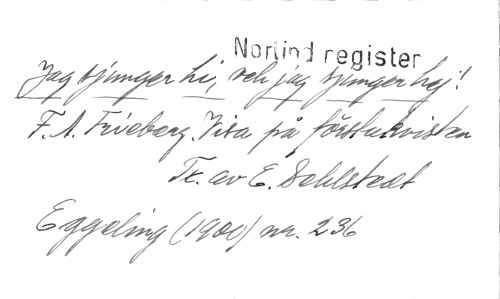 Norlind register
Jag sjunger hi, och jag sjunger hej!
F. A. Frieberg. Visa på förstukvisten
Tx. av E. Sehlstedt
Eggeling (1900) nr. 236